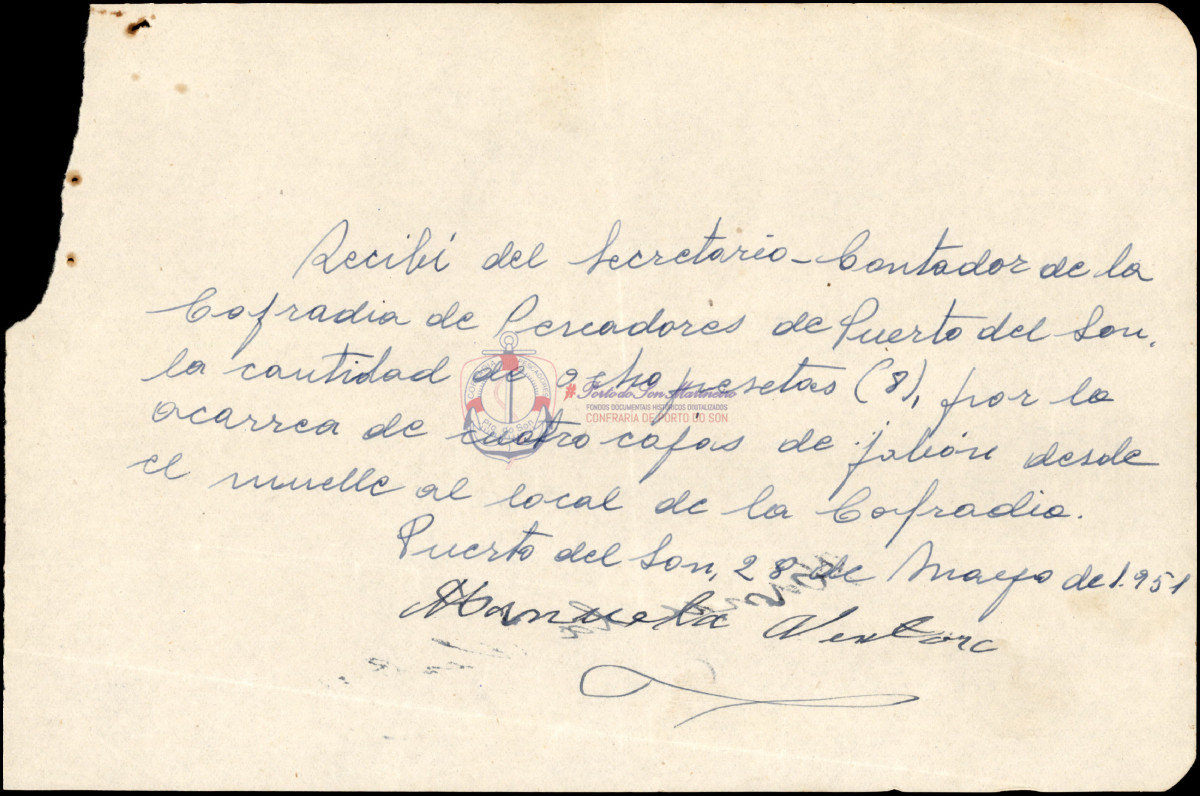 Recibí del Secretario-Contador de la
Cofradia de Pescadores de Puerto del Son,
la cantidad de ocho pesetas (8), por la
acarrea de cuatro cajas de jabón desde
el muelle al local de la Cofradia.
Puerto del Son, 28 de Mayo de 1.951
Manuela Ventora
#Porto do Son Mariñeiro
FONDOS DOCUMENTAIS HISTÓRICOS DIXITALIZADOS
CONFRARÍA DE PORTO DO SON
Pto. do Son